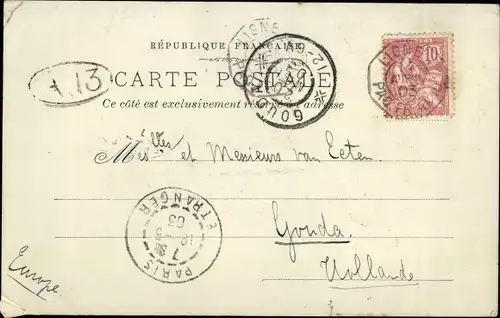 RÉPUBLIQUE FRANÇAISE
CARTE POSTALE
Ce côté est exclusivement réservé à l'adresse
A.13
LIGNE
10
LIGNE
GOUDA
Mes.lles et Messieurs van Eeten
Gouda
Hollande
Europe
PARIS ETRANGER
7
03